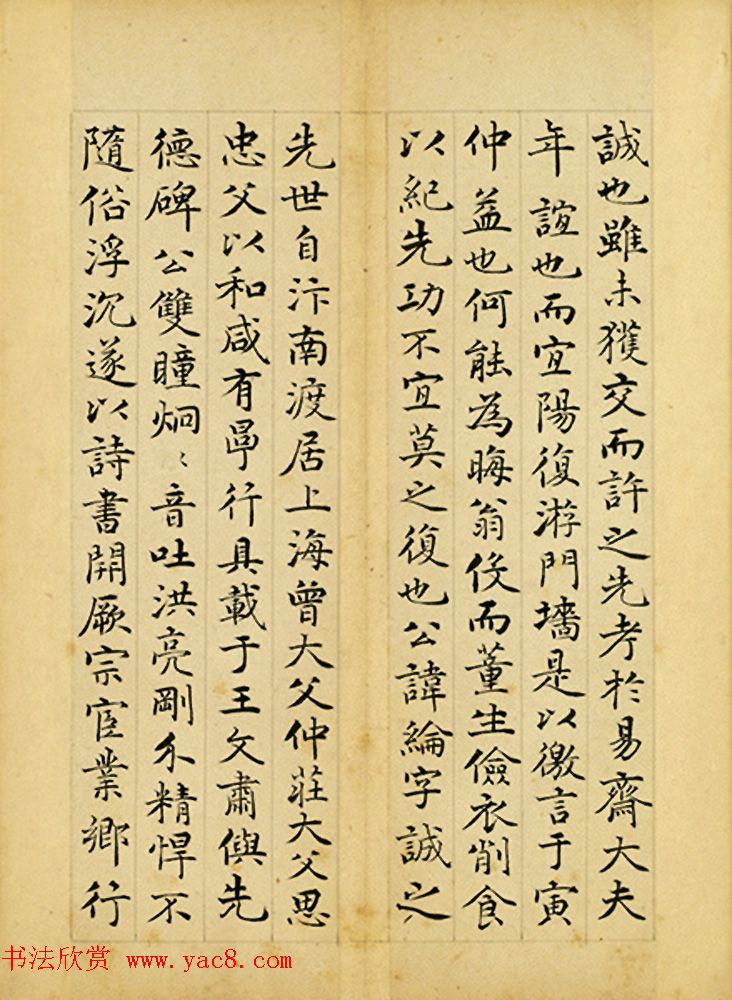 誠也雖未獲交而許之先考於易齋大夫
年誼也而宜陽復游門墻是以徼言于寅
仲益也何能為晦翁役而董生儉衣削食
以紀先功不宜莫之復也公諱綸字誠之
先世自汴南渡居上海曾大父仲莊大父思
忠父以和咸有學行具載于王文肅與先
德碑公雙瞳炯〻音吐洪亮剛介精悍不
隨俗浮沉遂以詩書開厥宗宦業鄉行
书法欣赏 www.yac8.com